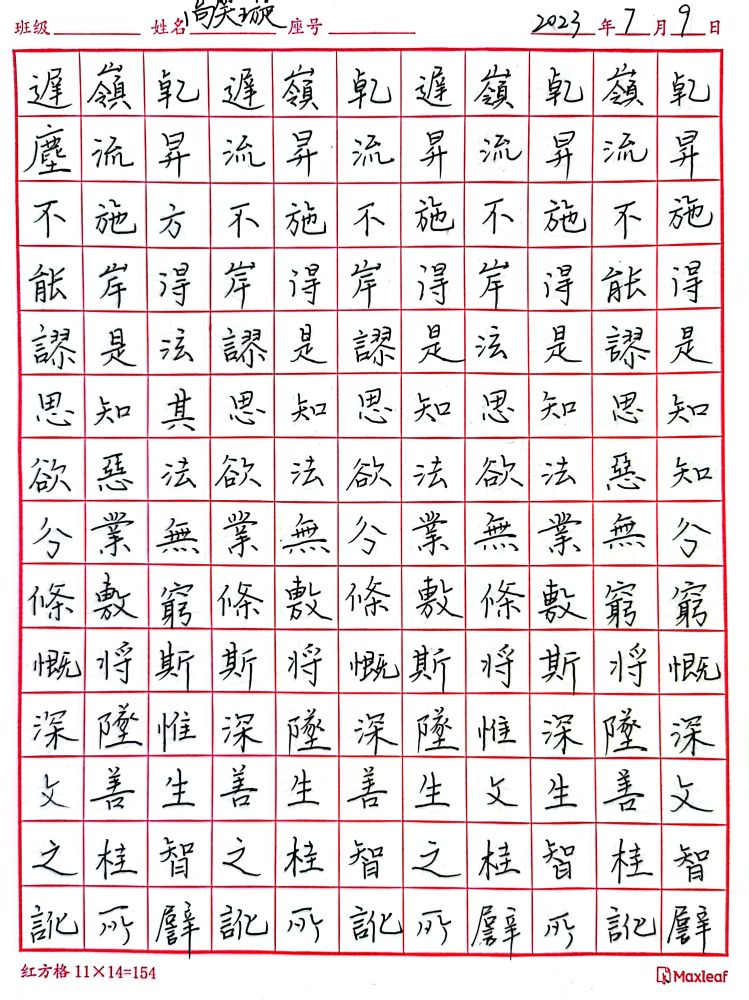 班级 姓名 笑璇 座号 2023 年 7 月 9 日
遲 嶺 乹 遲 嶺 乹 遲 嶺 乹 嶺 乹
塵 流 昇 流 昇 流 昇 流 昇 流 昇
不 施 方 不 施 不 施 不 施 不 施
能 岸 得 岸 得 岸 得 岸 得 能 得
謬 是 泫 謬 是 謬 是 泫 是 謬 是
思 知 其 思 知 思 知 思 知 思 知
欲 惡 法 欲 法 欲 法 欲 法 惡 知
兮 業 無 業 無 兮 業 無 業 無 兮
條 敷 窮 條 敷 條 敷 條 敷 窮 窮
慨 将 斯 斯 将 慨 斯 将 斯 将 慨
深 墬 惟 深 墬 深 墬 惟 深 墬 深
文 善 生 善 生 善 生 文 生 善 文
之 桂 智 之 桂 智 之 桂 智 桂 智
訛 所 譬 訛 所 訛 所 譬 所 訛 譬
红方格 11×14=154 Maxleaf